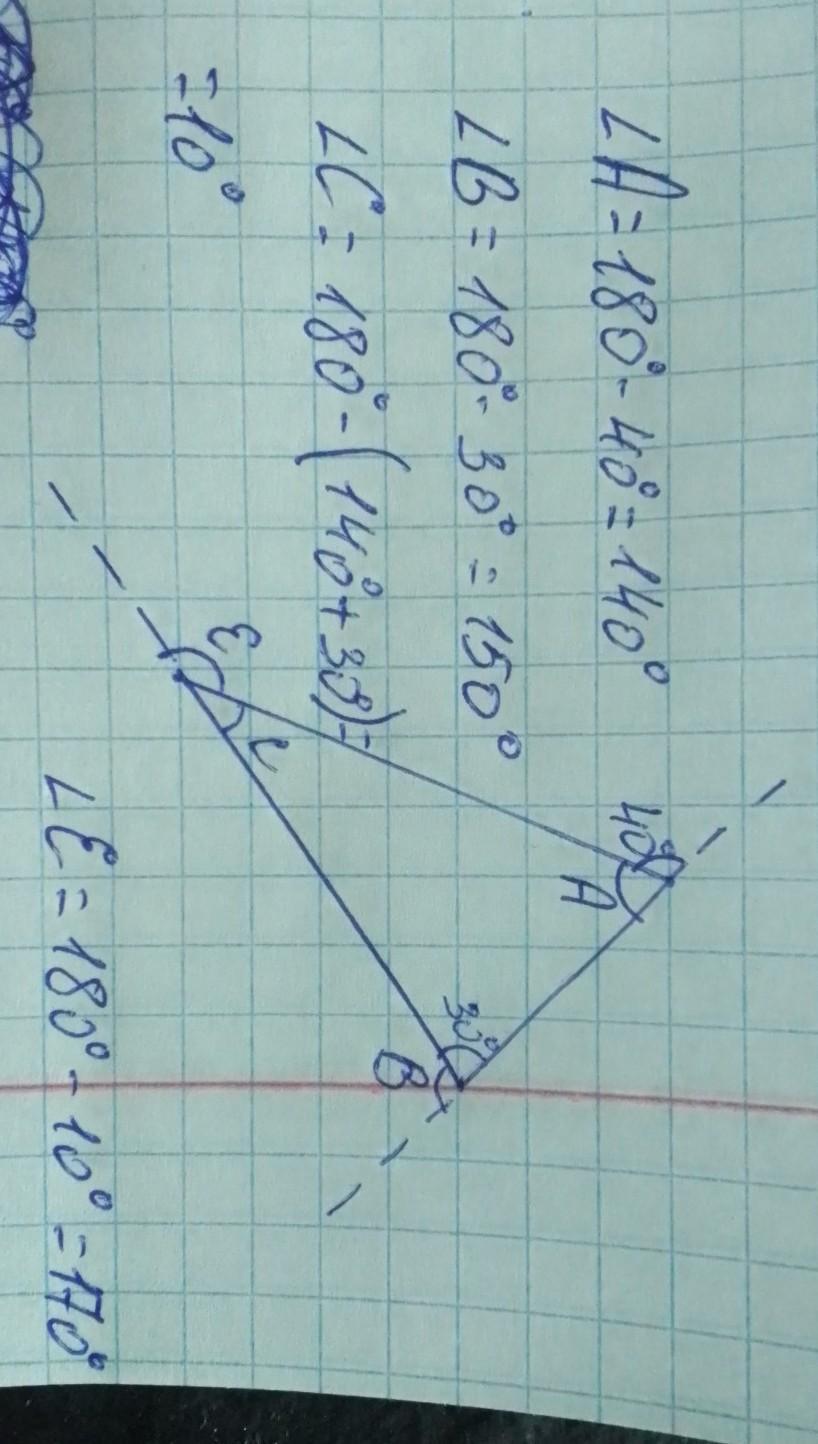 ∠A = 180° - 40° = 140°
∠B = 180° - 30° = 150°
∠C = 180° - (140° + 30) =
= 10°
40°
A
30°
B
E
C
∠E = 180° - 10° = 170°